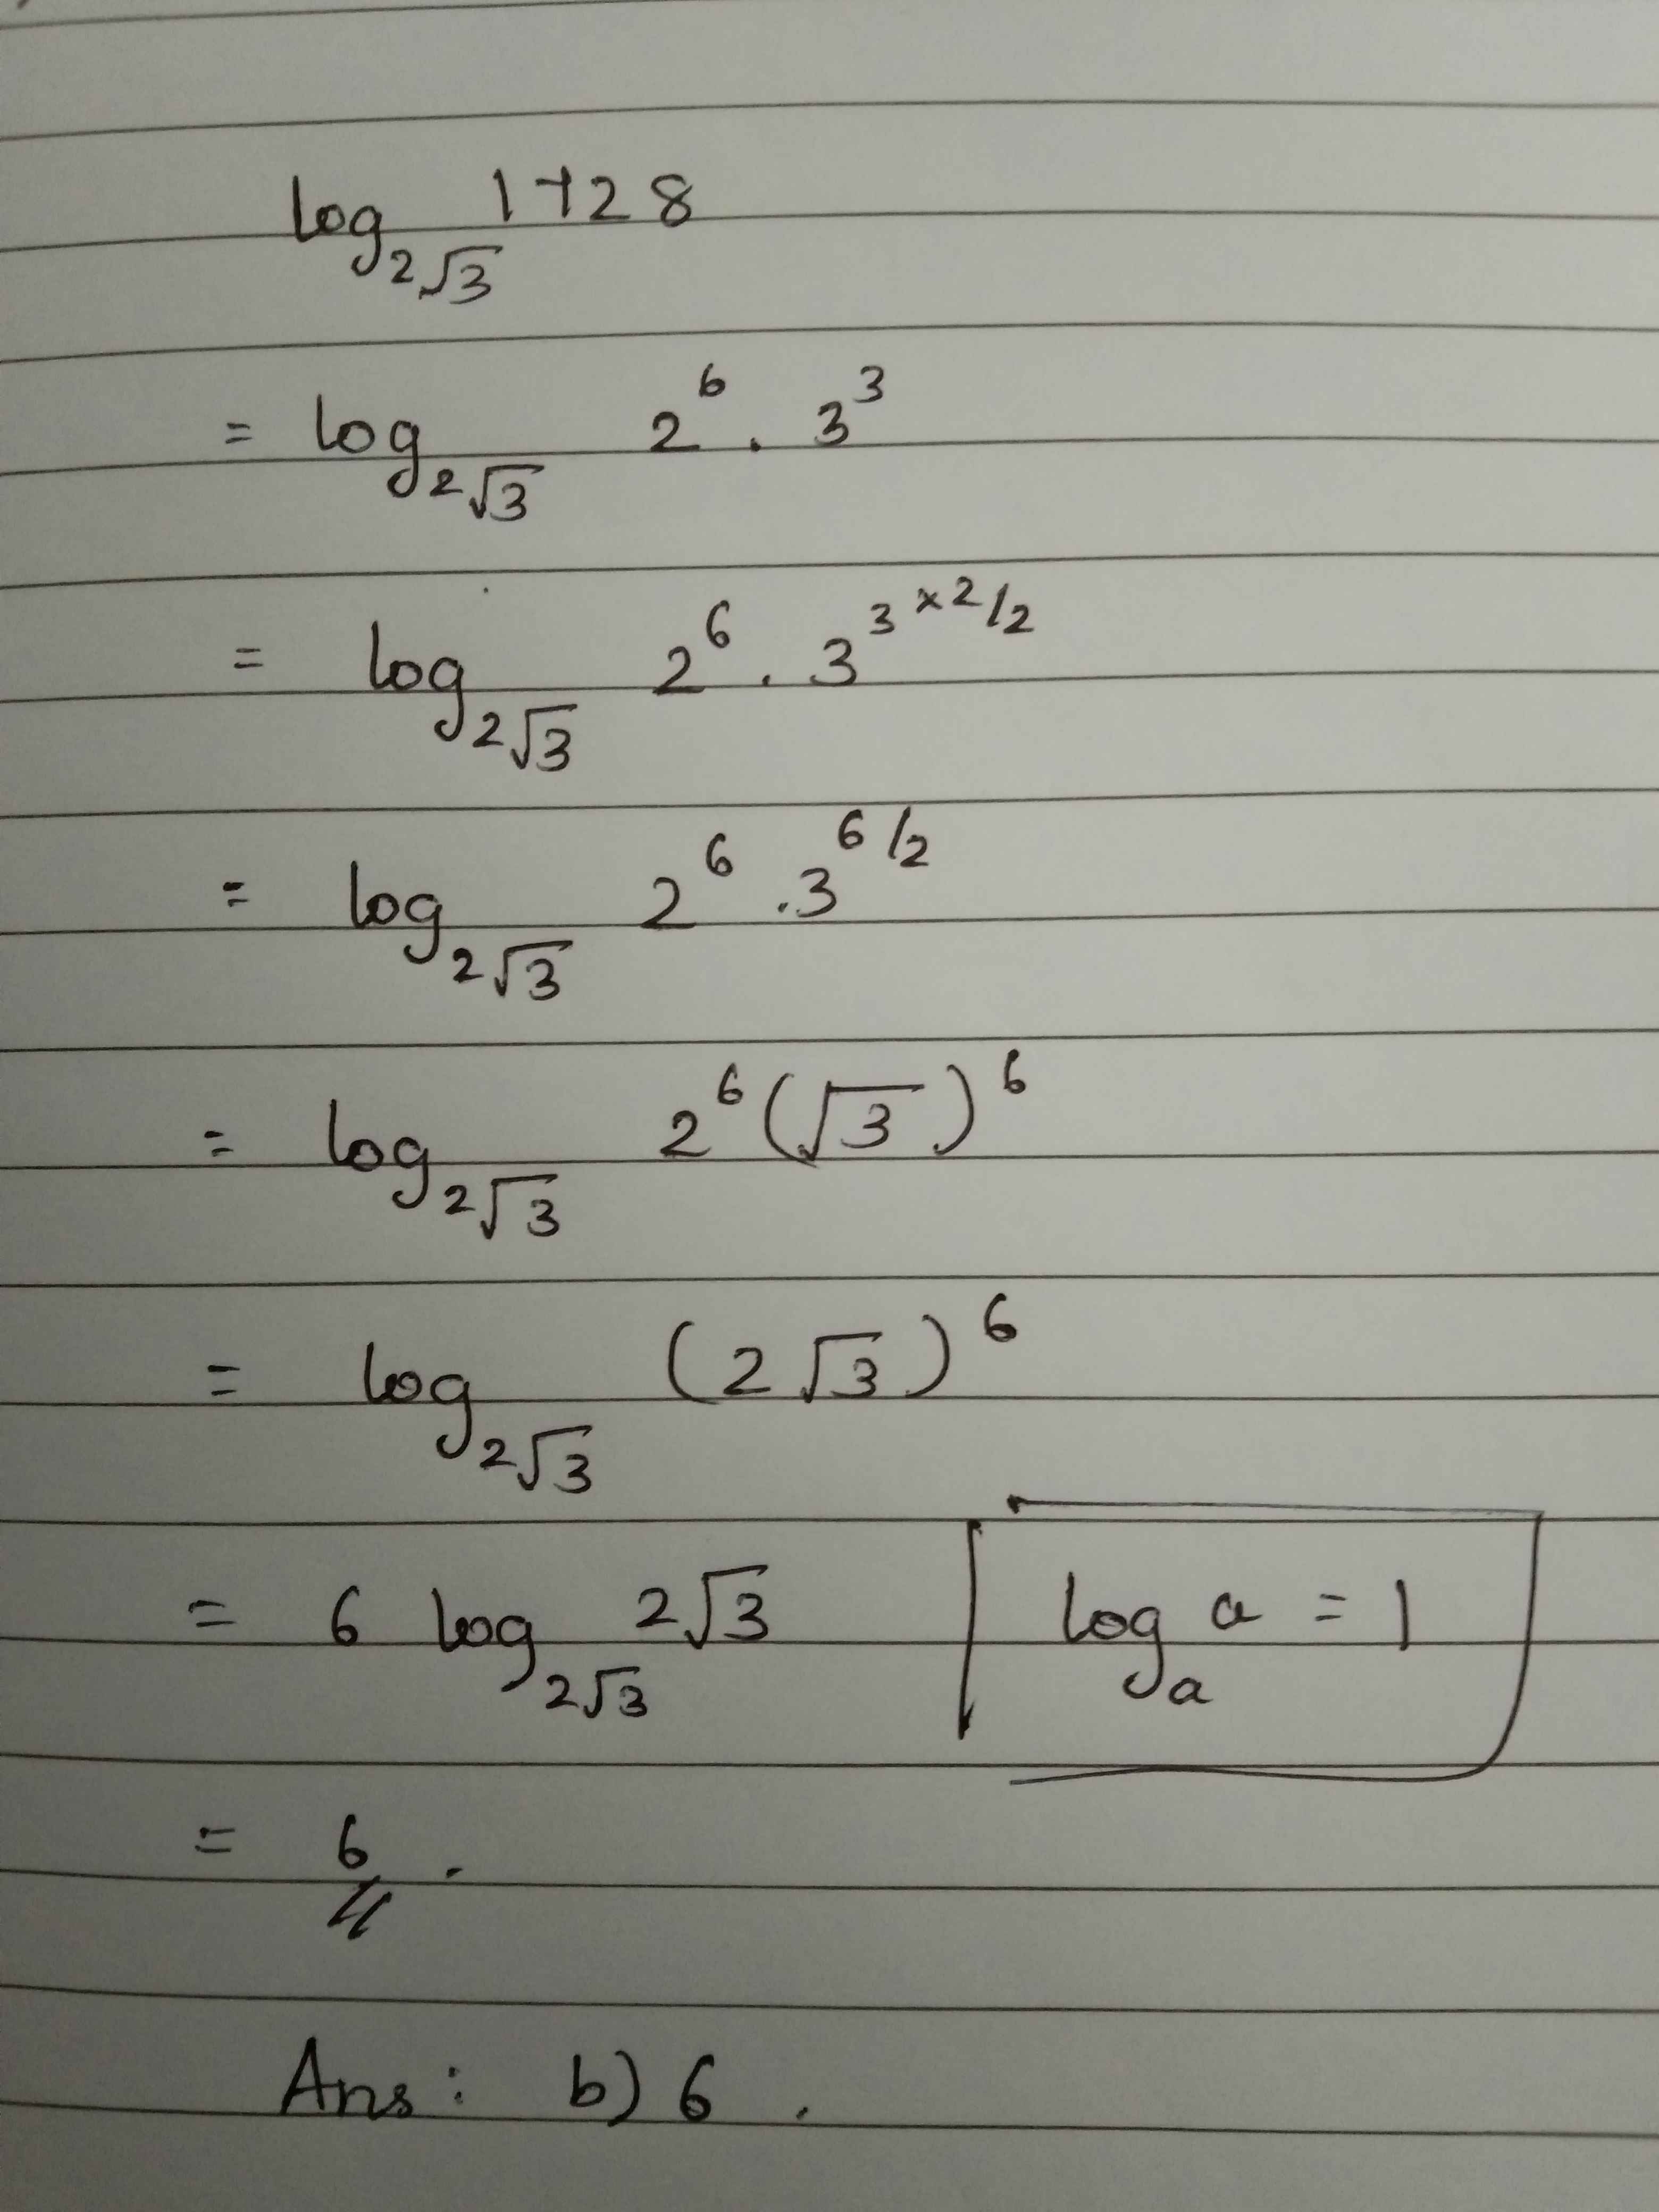 log₂√₃ 1728
= log₂√₃ 2⁶ . 3³
= log₂√₃ 2⁶ . 3³ ˣ ²ᐟ²
= log₂√₃ 2⁶ . 3⁶ᐟ²
= log₂√₃ 2⁶ (√3)⁶
= log₂√₃ (2√3)⁶
= 6 log₂√₃ 2√3 logₐ a = 1
= 6 .
Ans : b) 6 .